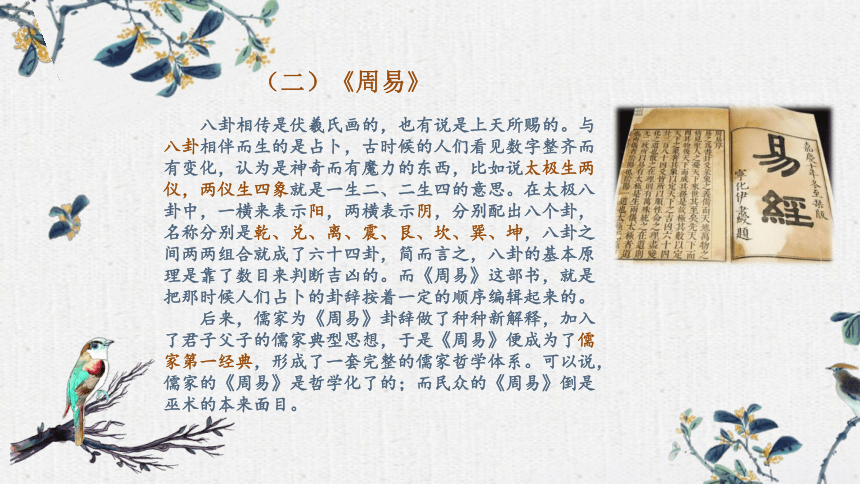 （二）《周易》
八卦相传是伏羲氏画的，也有说是上天所赐的。与
八卦相伴而生的是占卜，古时候的人们看见数字整齐而
有变化，认为是神奇而有魔力的东西，比如说太极生两
仪，两仪生四象就是一生二、二生四的意思。在太极八
卦中，一横来表示阳，两横表示阴，分别配出八个卦，
名称分别是乾、兑、离、震、艮、坎、巽、坤，八卦之
间两两组合就成了六十四卦，简而言之，八卦的基本原
理是靠了数目来判断吉凶的。而《周易》这部书，就是
把那时候人们占卜的卦辞按着一定的顺序编辑起来的。
后来，儒家为《周易》卦辞做了种种新解释，加入
了君子父子的儒家典型思想，于是《周易》便成为了儒
家第一经典，形成了一套完整的儒家哲学体系。可以说，
儒家的《周易》是哲学化了的；而民众的《周易》倒是
巫术的本来面目。
易經